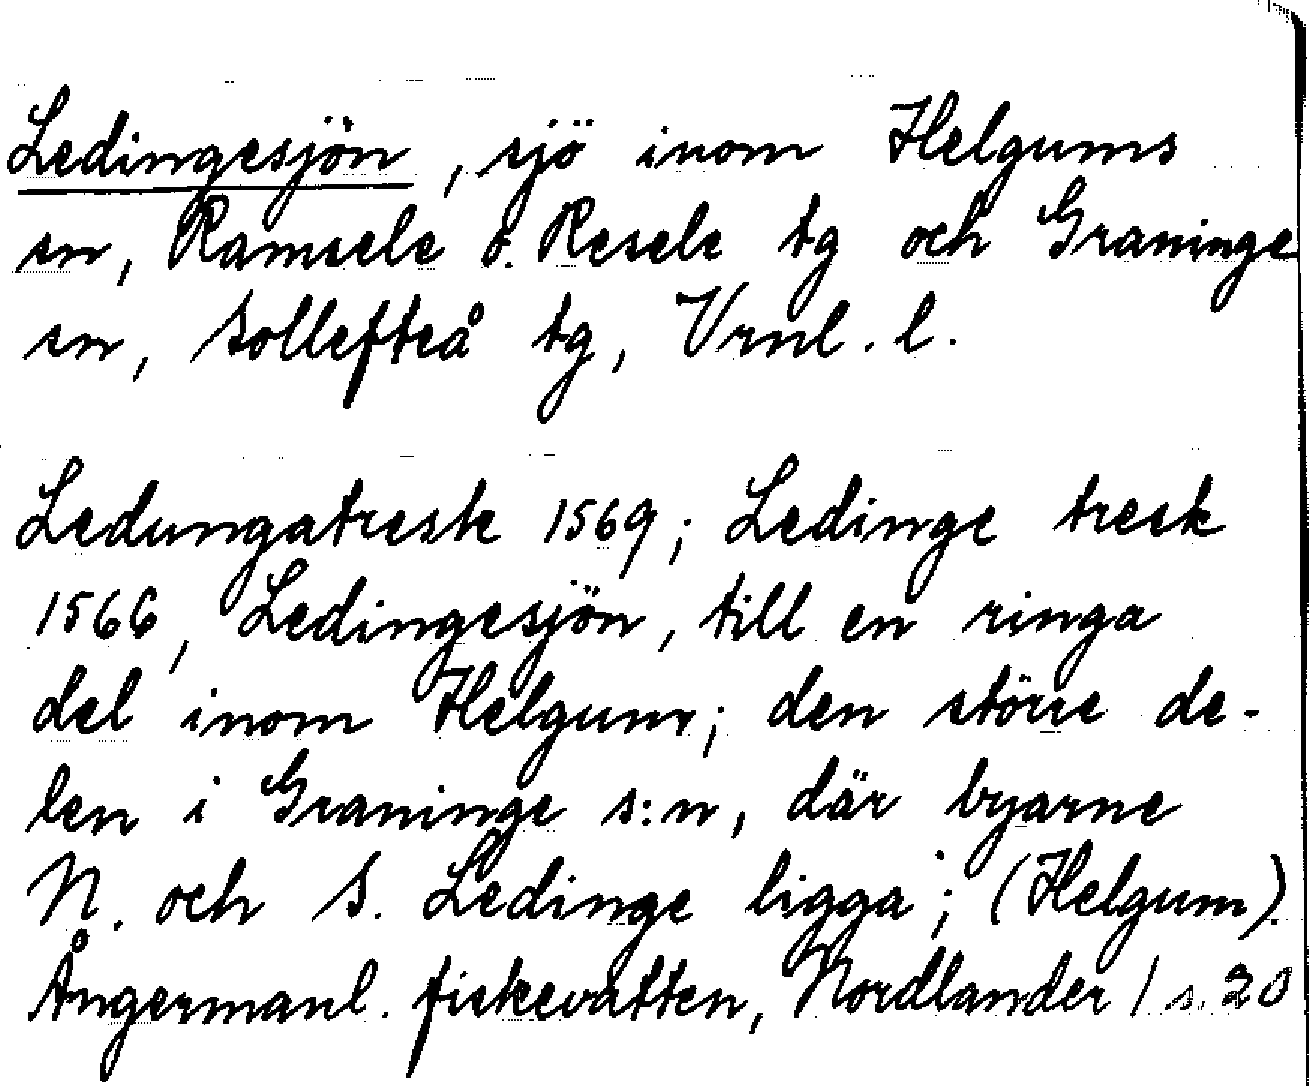 Ledingesjön, sjö inom Helgums
sn, Ramsele o. Resele tg och Graninge
sn, Sollefteå tg, Vrnl. l.
Ledungatresk 1569; Ledinge tresk
1566, Ledingesjön, till en ringa
del inom Helgum; den större de-
len i Graninge s:n, där byarne
N. och S. Ledinge ligga; (Helgum).
Ångermanl. fiskevatten, Nordlander 1 s. 20